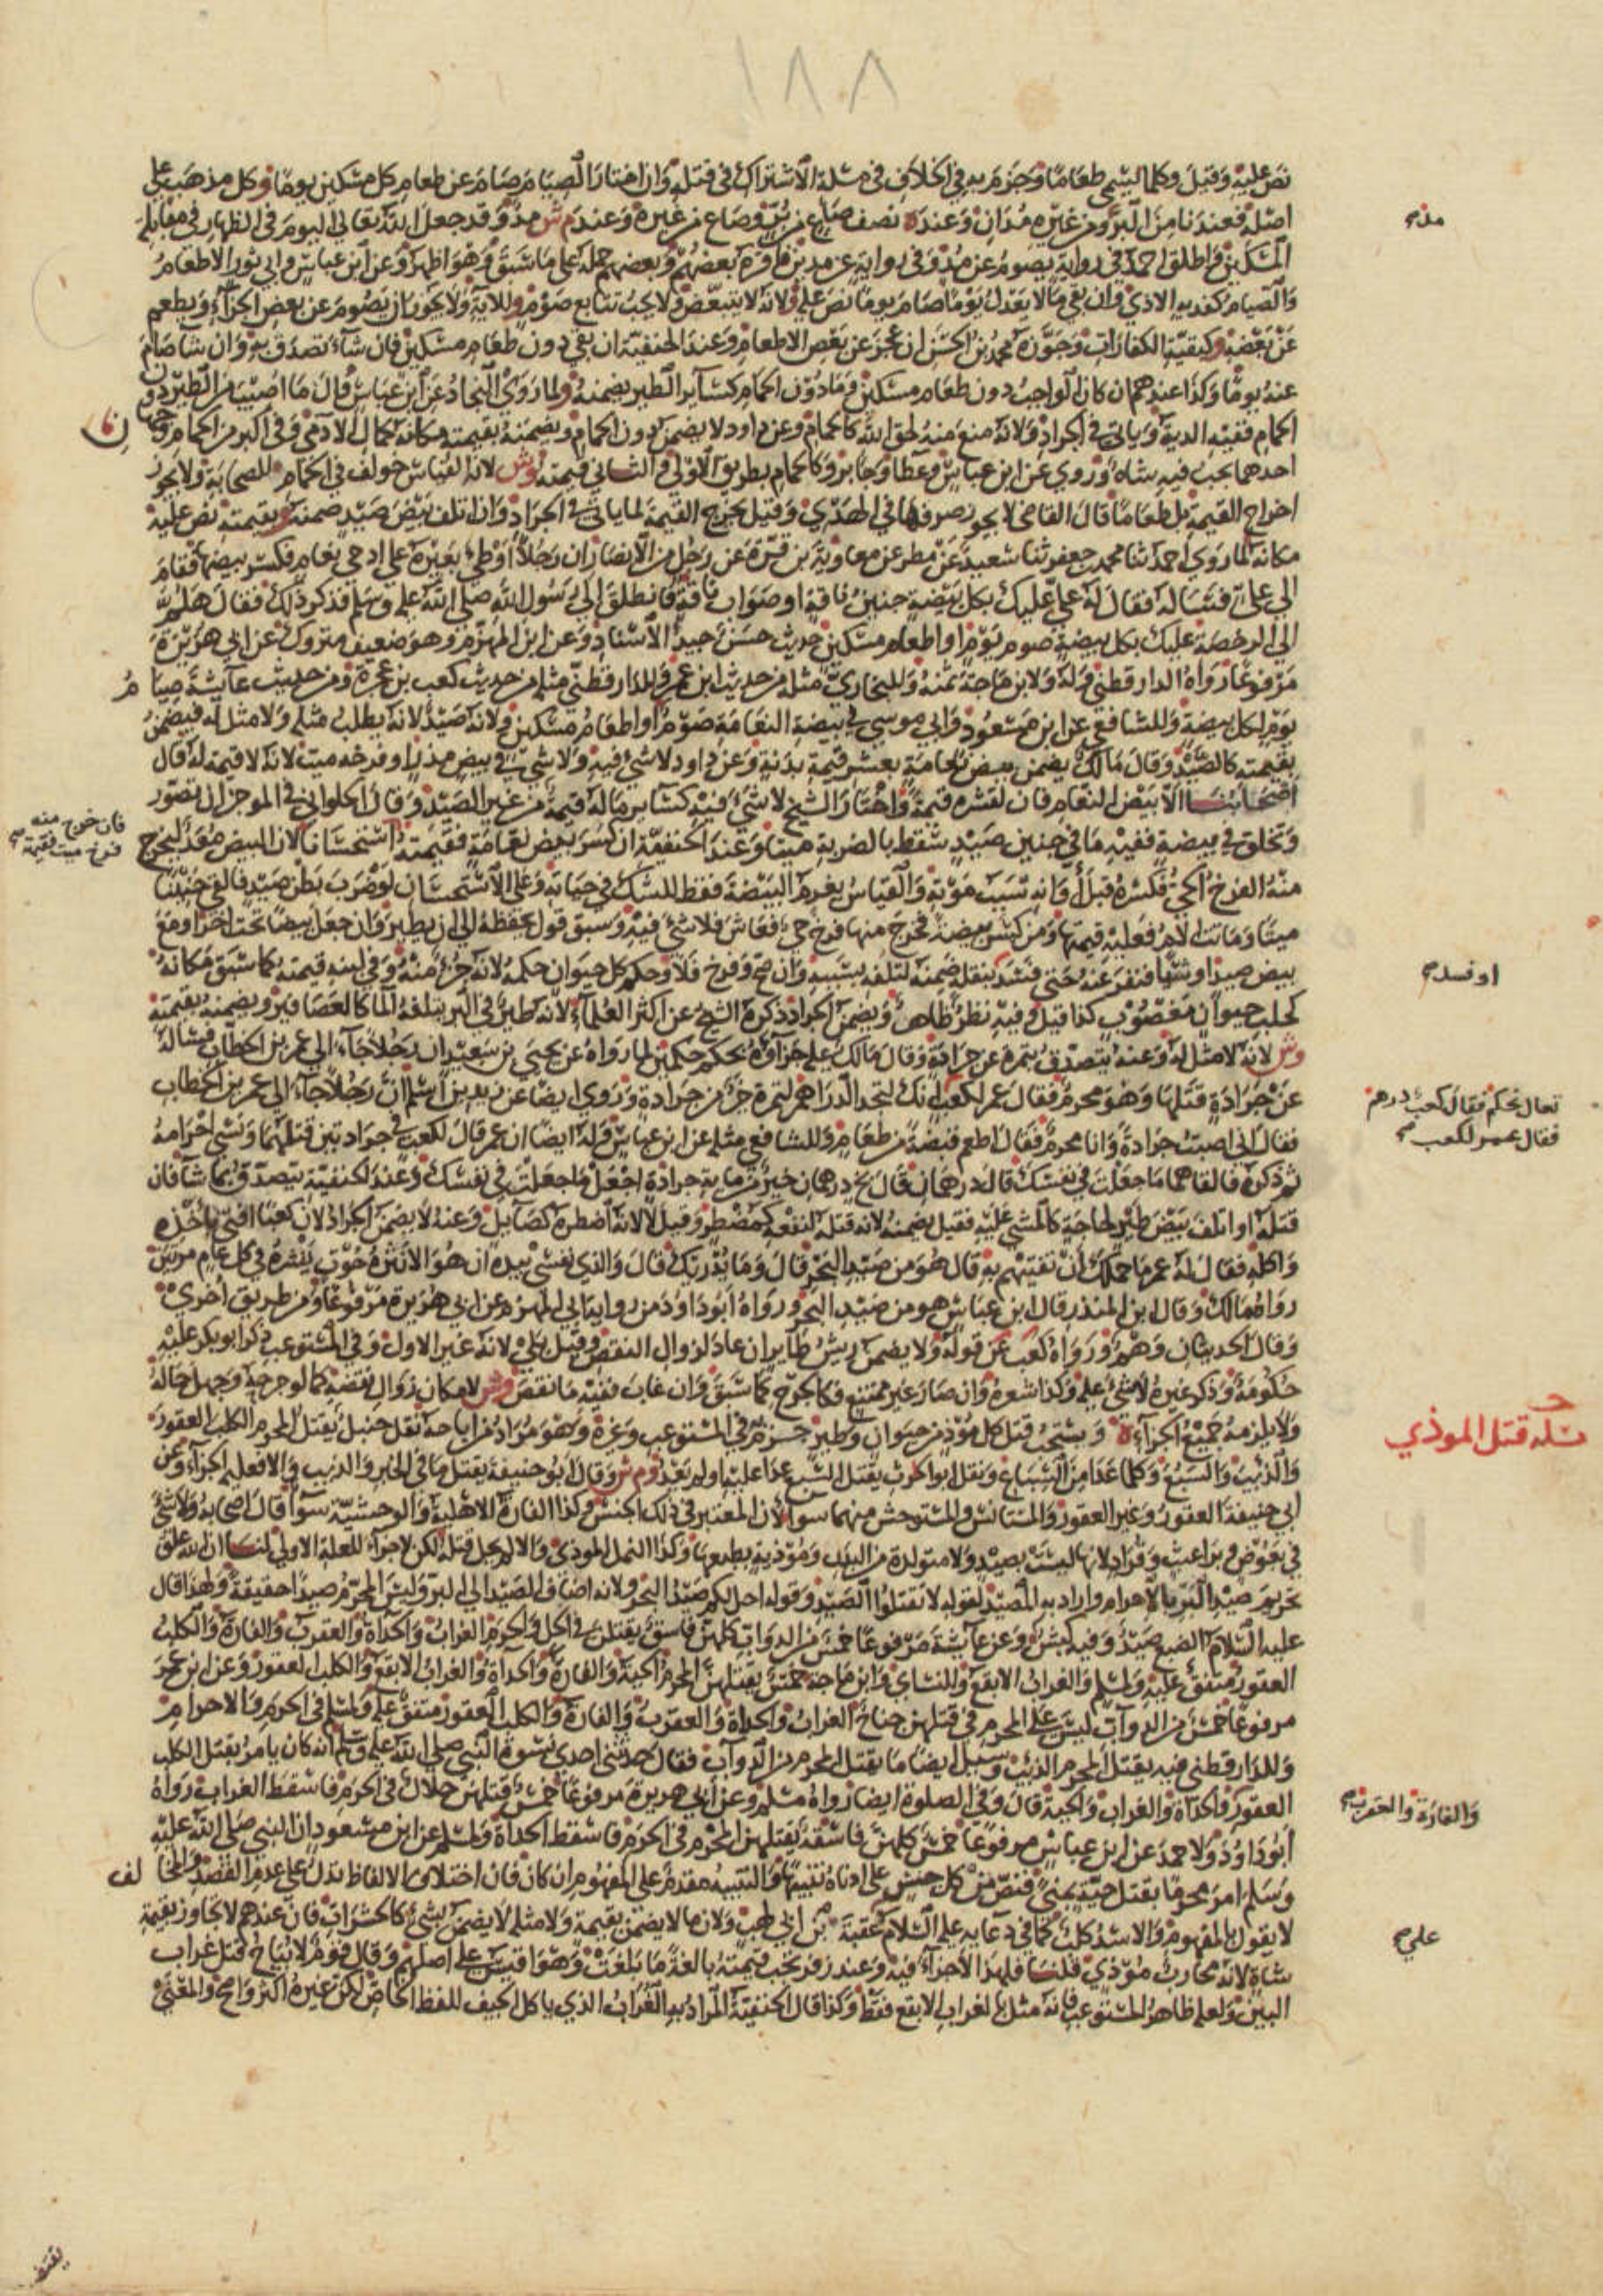 ١٨٨
نص عليه وقيل وكلما يسمى طعاما وجزم به في الخلاف في مسئلة الاشتراك في قتله وان اختار الصيام صام عن طعام كل مسكين يوما وكل مذهب على
اصله فعندنا من البر ومن غيره مدان وعنده نصف صاع من بر وصاع من غيره وعند م ش مد وقد جعل الله تعالى اليوم في الظهار في مقابلة
المسكين واطلق احمد في رواية يصوم عن مد وفي رواية عن مدين فاقره بعضهم وبعضهم حمله على ما سبق وهو اظهر وعن ابن عباس وابي ثور الاطعام
والصيام كفدية الاذى وان بقي ما لا يعدل يوما صام يوما نص عليه ولانه لا يتبعض ولا يجب تتابع صوم وللاية ولا يجوز ان يصوم عن بعض الجزاء ويطعم
عن بعضه كبقية الكفارات وجوزه محمد بن الحسن ان عجز عن بعض الاطعام وعند الحنفية ان بقي دون طعام مسكين فان شاء تصدق به وان شا صام
عنه يوما وكذا عندهم ان كان الواجب دون طعام مسكين وما دون الحمام كسائر الطير يضمنه ولما روى النجاد عن ابن عباس قال ما اصيب من الطير دون
الحمام ففيه الدية وياتي في الجراد ولانه منع منه لحق الله كالحمام وعن داود لا يضمن دون الحمام ويضمنه بقيمته مكانه كمال الادمي وفي اكبر من الحمام وجهان
احدهما يجب فيه شاه وروي عن ابن عباس وعطا وجابر وكالحمام بطريق الاولى والثاني قيمته وش لانه القياس خولف في الحمام للصحابة ولا يجوز
اخراج القيمة بل طعاما قال القاضي لا يجوز صرفها في الهدي وقيل يخرج القيمة لما ياتي في الجراد وان اتلف بيض صيد ضمنه بقيمته نص عليه
مكانه لما روى احمد ثنا محمد بن جعفر ثنا سعيد عن مطر عن معاوية بن قرة عن رجل من الانصار ان رجلا اوطى بعيره على ادحي نعام فكسر بيضها فقام
الى علي فسأله فقال له علي عليك بكل بيضة جنين ناقة او ضراب ناقة فانطلق الى رسول الله صلى الله عليه وسلم فذكر ذلك فقال هلم
الى الرخصة عليك بكل بيضة صوم يوم او اطعام مسكين حديث حسن جيد الاسناد وعن ابن المهزم وهو ضعيف متروك عن ابي هريرة
مرفوعا رواه الدارقطني وله ولابن ماجة ثمنه وللنجاد مثله من حديث ابن عمر وللدارقطني مثله من حديث كعب بن عجرة ومن حديث عايشة صيام
يوم لكل بيضة وللشافعي عن ابن مسعود وابي موسى في بيضة النعامة صوم او اطعام مسكين ولانه صيد لانه يطلب مثله ولا مثل له فيضمن
بقيمته كالصيد وقال مالك يضمن بيض نعامة بعشر قيمة بدنة وعن داود لا شي فيه ولا شي في بيض مذر او فرخه ميت لانه لا قيمة له قال
اصحابنا الا بيض النعام فان لقشره قيمة واختار الشيخ لا شي فيه كسائر ما له قيمة من غير الصيد وقال الحلواني في الموجز ان تصور
وتخلق في بيضة ففيه ما في جنين صيد سقط بالضربة ميتا وعند الحنفية ان كسر بيض نعامة فقيمته استحسانا لان البيض معد ليخرج
فان خرج منه
فرخ ميت فقيمته
منه الفرخ الحي فكسره قبل اوانه سبب موته والقياس يغرم البيضة فقط للشك في حياته وعلى الاستحسان لو ضرب بطن صيد فالقى جنينا
ميتا وماتت الام فعليه قيمتها ومن كسر بيضة فخرج منها فرخ حي فعاش فلا شي فيه وسبق قول يحفظه الى ان يطير وان جعل بيضا تحت اخر او مع
بيض صيد او شيئا فنفر عنه حتى فسد بنقله ضمنه لتلفه بسببه وان صح وفرخ فلا وحكم كل حيوان حكمه لانه جزء منه وفي لبنه قيمته كما سبق مكانه
او فسد
كحلب حيوان مغصوب كذا قيل وفيه نظر ظاهر ويضمن الجراد ذكره الشيخ عن اكثر العلماء لانه طير في البر يتلفه الماء كالعصافير ويضمنه بقيمته
وش لانه لا مثل له وعنه يتصدق بتمرة عن جرادة وقال مالك عليه جزاؤه بحكم حكمين لما رواه عن يحيى بن سعيد ان رجلا جاء الى عمر بن الخطاب فسأله
عن جرادة قتلها وهو محرم فقال عمر لكعب انك لتجد الدراهم لتمرة خير من جرادة وروى ايضا عن زيد بن اسلم ان رجلا جاء الى عمر بن الخطاب
تعال نحكم فقال كعب درهم
فقال عمر لكعب
فقال اني اصبت جرادة وانا محرم فقال اطعم قبضة من طعام وللشافعي مثله عن ابن عباس وله ايضا ان عمر قال لكعب في جرادتين قتلهما ونسي احرامه
ثم ذكره فالقاهما ما جعلت في نفسك قال درهمان قال بخ درهمان خير من مايه جرادة اجعل ما جعلت في نفسك وعند الحنفية يتصدق بما شا فان
قتله او اتلف بيض طير لحاجة كالمشي عليه فقيل يضمنه لانه قتله لنفعه كمضطر وقيل لا لانه اضطره كصايل وعنه لا يضمن الجراد لان كعبا افتى باخذه
واكله فقال له عمر ما حملك ان تفتيهم به قال هو من صيد البحر قال وما يدريك قال والذي نفسي بيده ان هو الا نثرة حوت ينثره في كل عام مرتين
رواه مالك وقال ابن المنذر قال ابن عباس هو من صيد البحر ورواه ابو داود من رواية ابي المهزم عن ابي هريرة مرفوعا ومن طريق اخرى
وقال الحديثان وهم ورواه كعب عن قوله ولا يضمن ريش طاير ان عاد لزوال النقص وقيل بلى لانه غير الاول وفي المستوعب ذكر ابو بكر عليه
حكومة وذكر غيره لا شي عليه وكذا شعره وان صار غير ممتنع فكالجرح كما سبق وان غاب ففيه ما نقص وش لامكان زوال نقصه كما لو جرحه وجهل حاله
ولا يلزمه جميع الجزاء ه ويستحب قتل كل مؤذ من حيوان وطير جزم به في المستوعب وغيره وهو مراد من اباحه نقل حنبل يقتل المحرم الكلب العقور
مسئلة قتل الموذي
والذئب والسبع وكلما عدا من السباع ونقل ابو الحرث يقتل السبع عدا عليه او لم يعد وم ش وقال ابو حنيفة يقتل ما في الخبر والذيب والا فعليه الجزاء وعن
ابي حنيفة العقور وغير العقور والمستانس والمستوحش منهما سوا لان المعتبر في ذلك الجنس وكذا الفارة الاهلية والوحشية سوا قال اصحابه ولا شي
في بعوض وبراغيث وقراد لانها ليست بصيد ولا متولدة من البدن ومؤذية بطبعها وكذا النمل الموذي والا لم يحل قتله لكن لا جزاء للعلة الاولى لنا ان الله علق
تحريم صيد البر بالاحرام واراد به المصيد لقوله لا تقتلوا الصيد وقوله احل لكم صيد البحر ولانه اضاف الصيد الى البر وليس المحرم صيدا حقيقة ولهذا قال
عليه السلام الضبع صيد وفيه كبش وعن عايشة مرفوعا خمس من الدواب كلهن فاسق يقتلن في الحل والحرم الغراب والحداة والعقرب والفارة والكلب
العقور متفق عليه ولمسلم والغراب الابقع وللنساي وابن ماجة خمس يقتلهن المحرم الحية والفارة والحداة والغراب الابقع والكلب العقور وعن ابن عمر
مرفوعا خمس من الدواب ليس على المحرم في قتلهن جناح الغراب والحداة والعقرب والفارة والكلب العقور متفق عليه ولمسلم في الحرم والاحرام
وللدارقطني فيه يقتل المحرم الذئب وسئل ايضا ما يقتل المحرم من الدواب فقال حدثتني احدى نسوة النبي صلى الله عليه وسلم انه كان يامر بقتل الكلب
العقور والحداة والغراب والحية قال وفي الصلوة ايضا رواه مسلم وعن ابي هريرة مرفوعا خمس قتلهن حلال في الحرم فاسقط الغراب رواه
والفارة والعقرب
ابو داود ولاحمد عن ابن عباس مرفوعا خمس كلهن فاسقة يقتلهن المحرم في الحرم فاسقط الحداة ولمسلم عن ابن مسعود ان النبي صلى الله عليه
وسلم امر محرما بقتل حية بمنى فنص من كل جنس على ادناه تنبيها والتنبيه مقدم على المفهوم ان كان فان اختلاف الالفاظ تدل على عدم القصد والمخالف
لا يقول بالمفهوم والاسد كلب كما في دعايه عليه السلام على عتبة بن ابي لهب ولان ما لا يضمن بقيمة ولا مثل لا يضمن بشي كالحشرات فان عندهم لا يجاوز بقيمة
شاة لانه محارب مؤذي قلنا فلهذا لا جزاء فيه وعند زفر تجب قيمته بالغة ما بلغت وهو اقيس على اصلهم وقال قوم لا يباح قتل غراب
البين ولعله ظاهر المستوعب فانه مثل بالغراب الابقع فقط وكذا قال الحنفية المراد به الغراب الذي ياكل الجيف للفظ الخاص لكن غيره اكثر واصح والمعنى